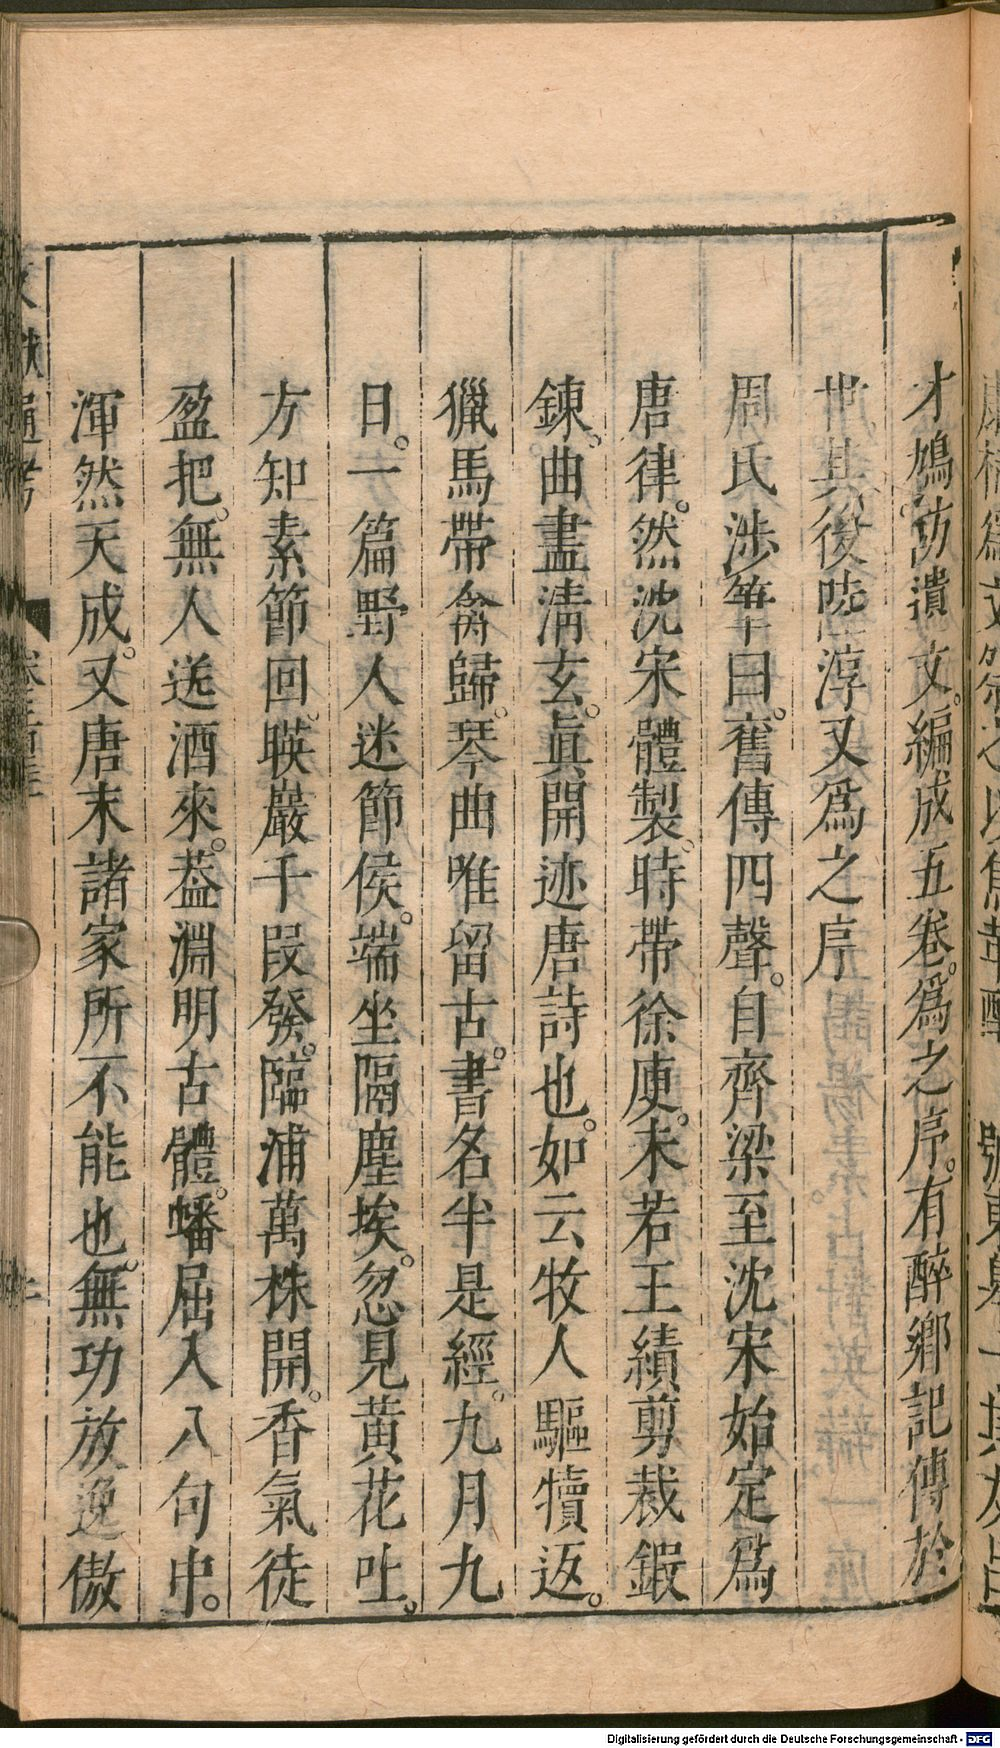 才鳩訪遺文。編成五卷。爲之序。有醉鄉記傳於
世其後陸淳又爲之序
周氏涉筆曰。舊傳四聲。自齊梁至沈宋始定爲
唐律。然沈宋體製。時帶徐庾。未若王績剪裁鍜
鍊。曲盡清玄。眞開迹唐詩也。如云牧人驅犢返。
獵馬帶禽歸。琴曲唯留古。書名半是經。九月九
日。一篇野人迷節侯。端坐隔塵埃。忽見黃花吐。
方知素節回。映巖千段發。臨浦萬株開。香氣徒
盈把。無人送酒來。葢淵明古體。蟠屈入八句中。
渾然天成。又唐末諸家所不能也。無功放逸傲
Digitalisierung gefördert durch die Deutsche Forschungsgemeinschaft - DFG